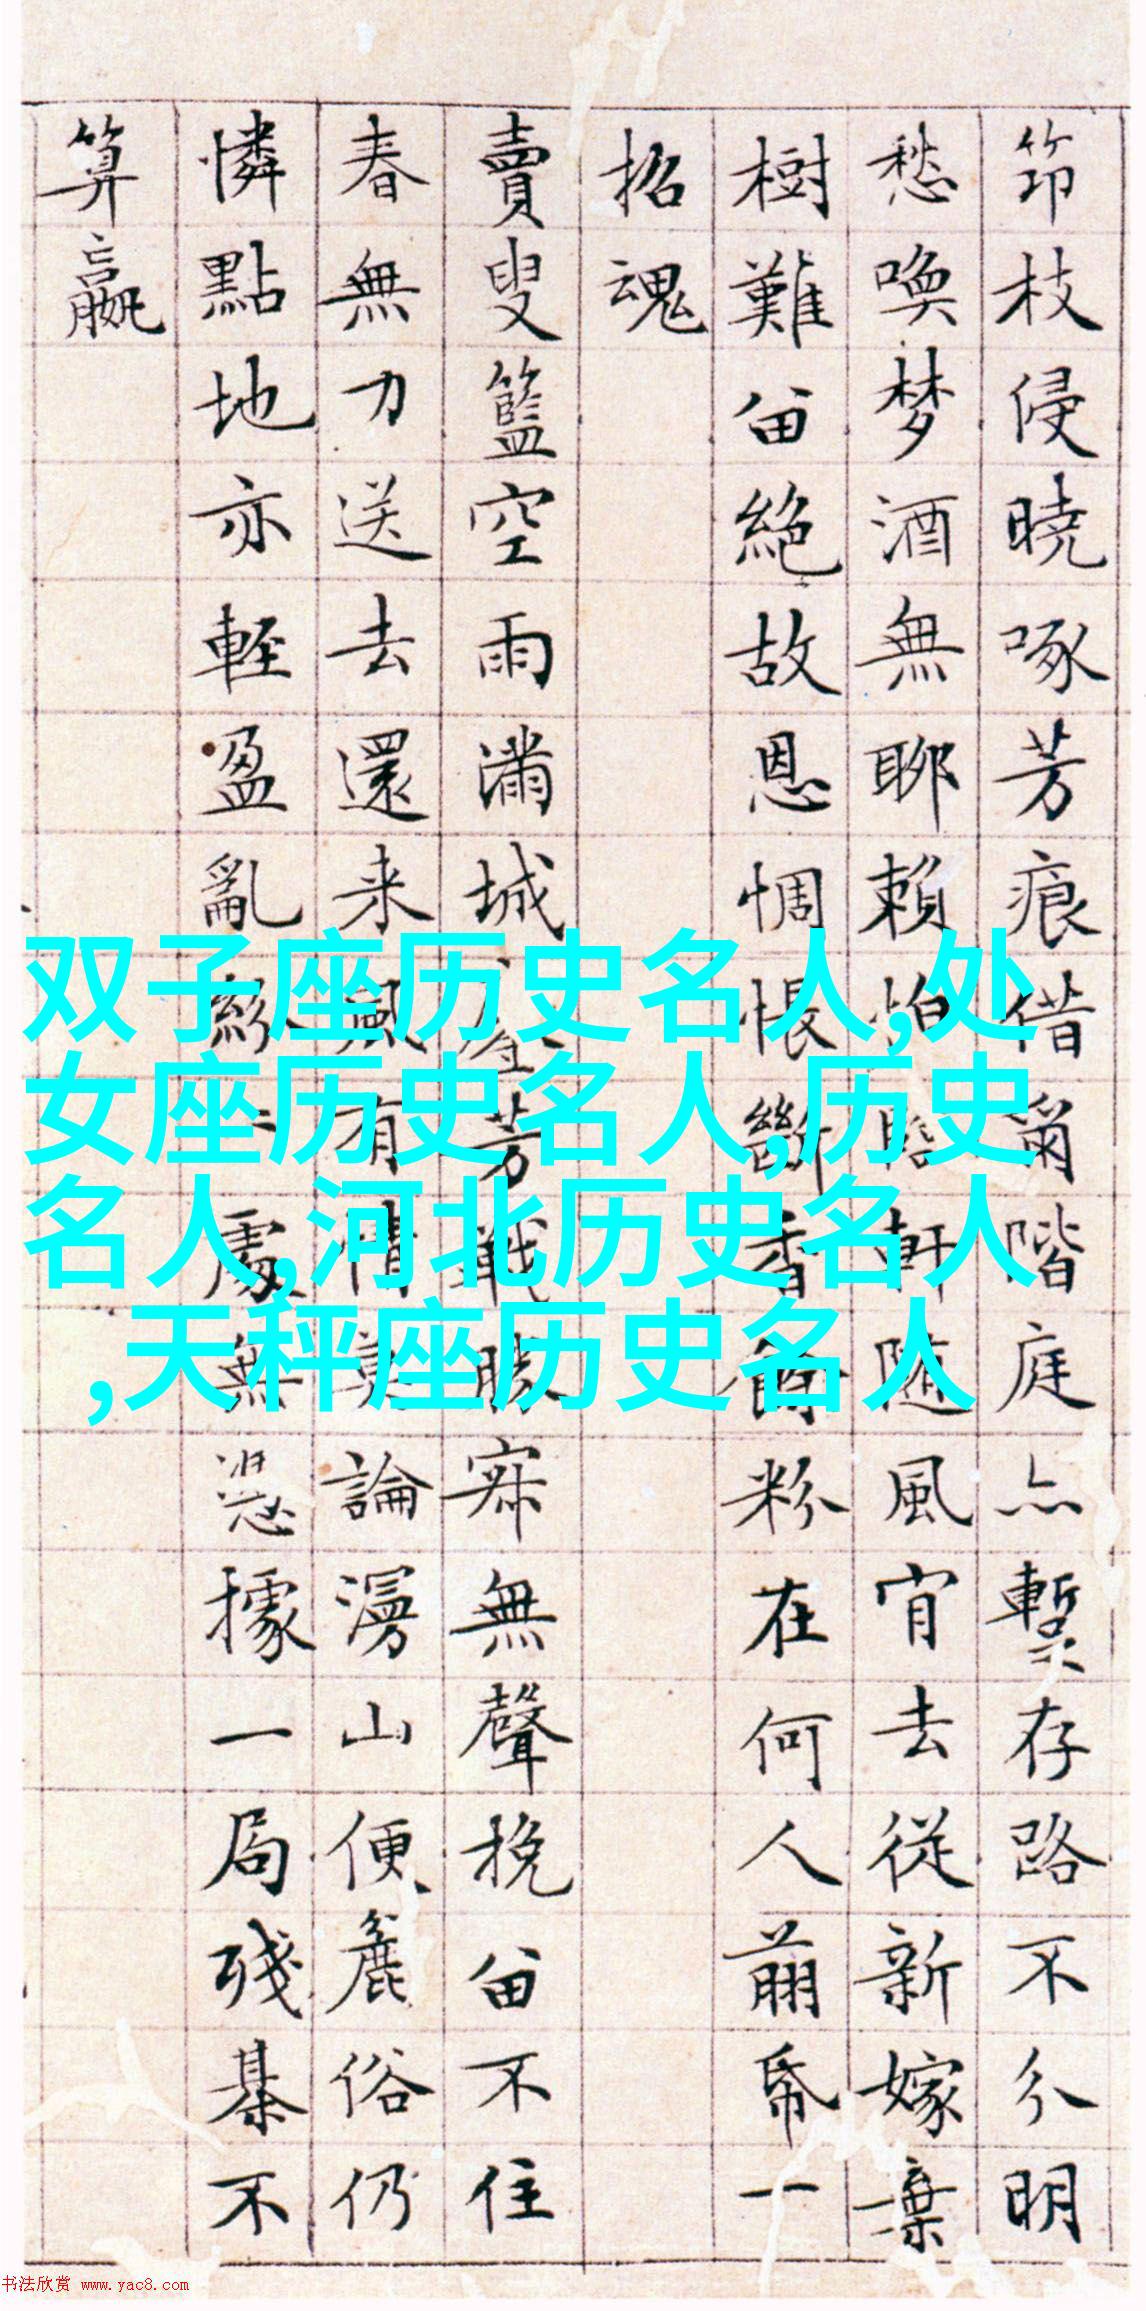 筇枝侵曉啄芳痕借爾階庭亦暫存路不分明
愁喚梦酒無聊賴怕臨軒随風宵去從新嫁棄
樹難留絶故恩惆悵斷香餘粉在何人剪帋一
招魂
賣叟籃空雨滿城芳戰勝寂無聲挽留不住
春無力送去還来風有情莫論漫山便麄俗仍
憐點地亦輕盈亂飄處無憑據一局殘棊不
算贏
双子座历史名人,处
女座历史名人,历史
名人,河北历史名人
,天秤座历史名人
书法欣赏 www.yac8.com